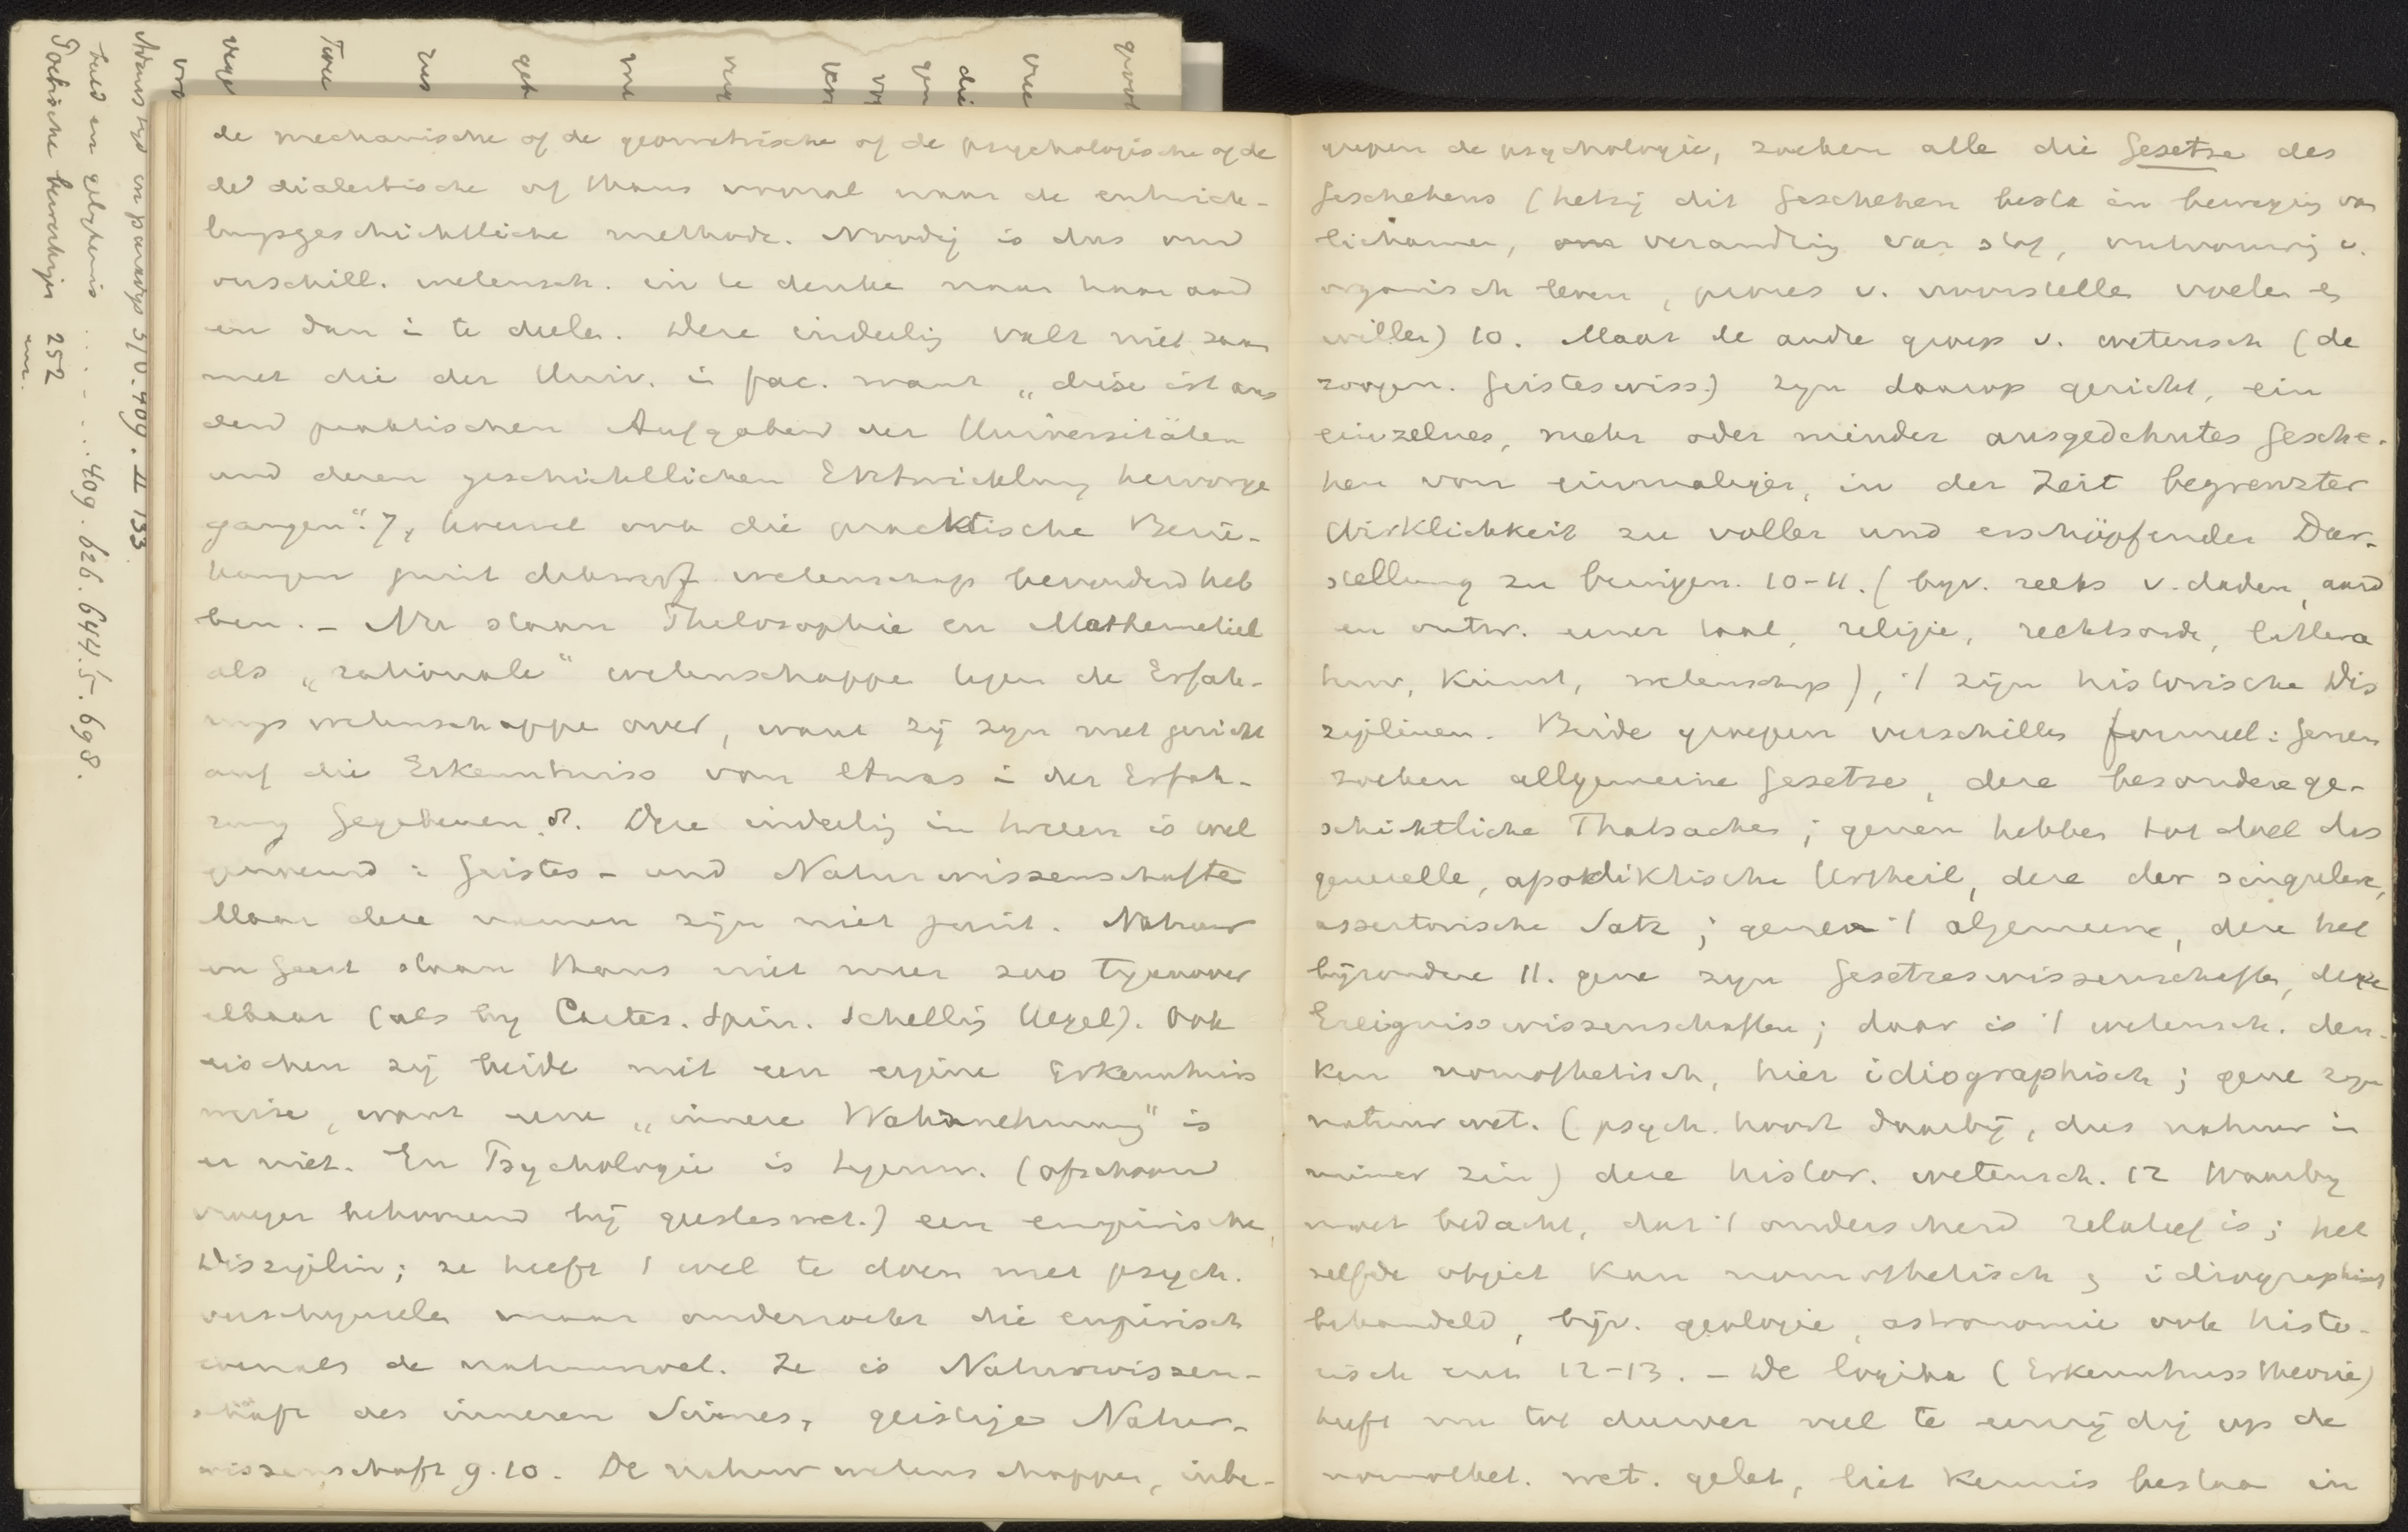 de mechanische of de geometrische of de psychologische of de
de dialectische of thans vooral naar de entwick-
lungsgeschichtliche methode. Noodig is dus ond
verschill. wetensch. in te denke naar haar aard
en dan i te deelen. Deze indeelig valt niet zaam
met die der Univ. i fac. want „diese ist aus
den praktischen Aufgaben der Universitäten
und deren geschichtlichen Entwicklung hervorge
gangen". 7, hoewel ook die practische Bezie-
hungen wetenschap bevorderd heb
ben. - Nu staan Philosophie en Mathematiek
als „rationale" wetenschappe tegen de Erfah-
rungs wetenschappe over, want zij zijn niet gericht
auf die Erkenntniss von etwas i der Erfah-
rung Gegebenen 8. Deze indeelig in tweeen is wel
genoemd : Geistes- und Naturwissenschafte
Maar deze namen zijn niet juist. Natuur
en Geest staan thans niet meer zoo tegenover
elkaar (als bij Cartes. Spin. Schellig Hegel). Ook
eischen zij beide niet een eigene Erkenntniss
weise, want eene „innere Wahrnehmung" is
er niet. En Psychologie is tegenw. (ofschoon
vroeger behoorend bij geesteswet.) een empirische
Disziplin; ze heeft wel te doen met psych.
verschijnsele maar onderzoekt die empirisch
evenals de natuurwet. Ze is Naturwissen-
schaft des inneren Sinnes, geistige Natur-
wissenschaft 9.10. De natuurwetenschappen, inbe-
grepen de psychologie, zoeken alle die Gesetze des
Geschehens (hetzij dit Geschehen besta in bewegig van
lichamen, verandrig van stof, ontvouwig v.
organisch leven, proces v. voorstelle voele en
wille) 10. Maar de andre groep v. wetensch (de
zoogen. Geisteswiss.) zyn daarop gericht, ein
einzelnes, mehr oder minder ausgedehntes Gesche-
hen von einmaliger, in der Zeit begrenzter
Wirklichkeit zu voller und erschöpfender Dar-
stellung zu bringen. 10-11. (bijv. reeks v. daden, aard
en ontw. eener taal, religie, rechtsorde, littera
tuur, kunst, wetenschap), 't zijn historische Dis
ziplinen. Beide groepen verschille formeel: genen
zoeken allgemeine Gesetze, deze besondere ge-
schichtliche Thatsachen; genen hebben tot doel das
generelle, apodiktische Urtheil, deze der singulere,
assertorische Satz; genen 't algemeene, deze het
bijzondere 11. gene zyn Gesetzeswissenschafte, deze
Ereignisswissenschaften; daar is 't wetensch. den-
ken nomothetisch, hier idiographisch; gene zyn
natuurwet. (psych. hoort daarbij, dus natuur in
ruimer zin) deze histor. wetensch. 12 Waarby
moet bedacht, dat 't onderscheid relatief is; het
zelfde object kan nomothetisch en idiographisch
behandeld, bijv. geologie, astronomie ook histo-
risch enz 12-13. - De logika (Erkenntnisstheorie)
heeft nu tot dusver veel te eenzijdig op de
nomothet. wet. gelet, liet kennis bestaa in
Poëtische 252
409. 626. 644. 5. 698.
409. II 133